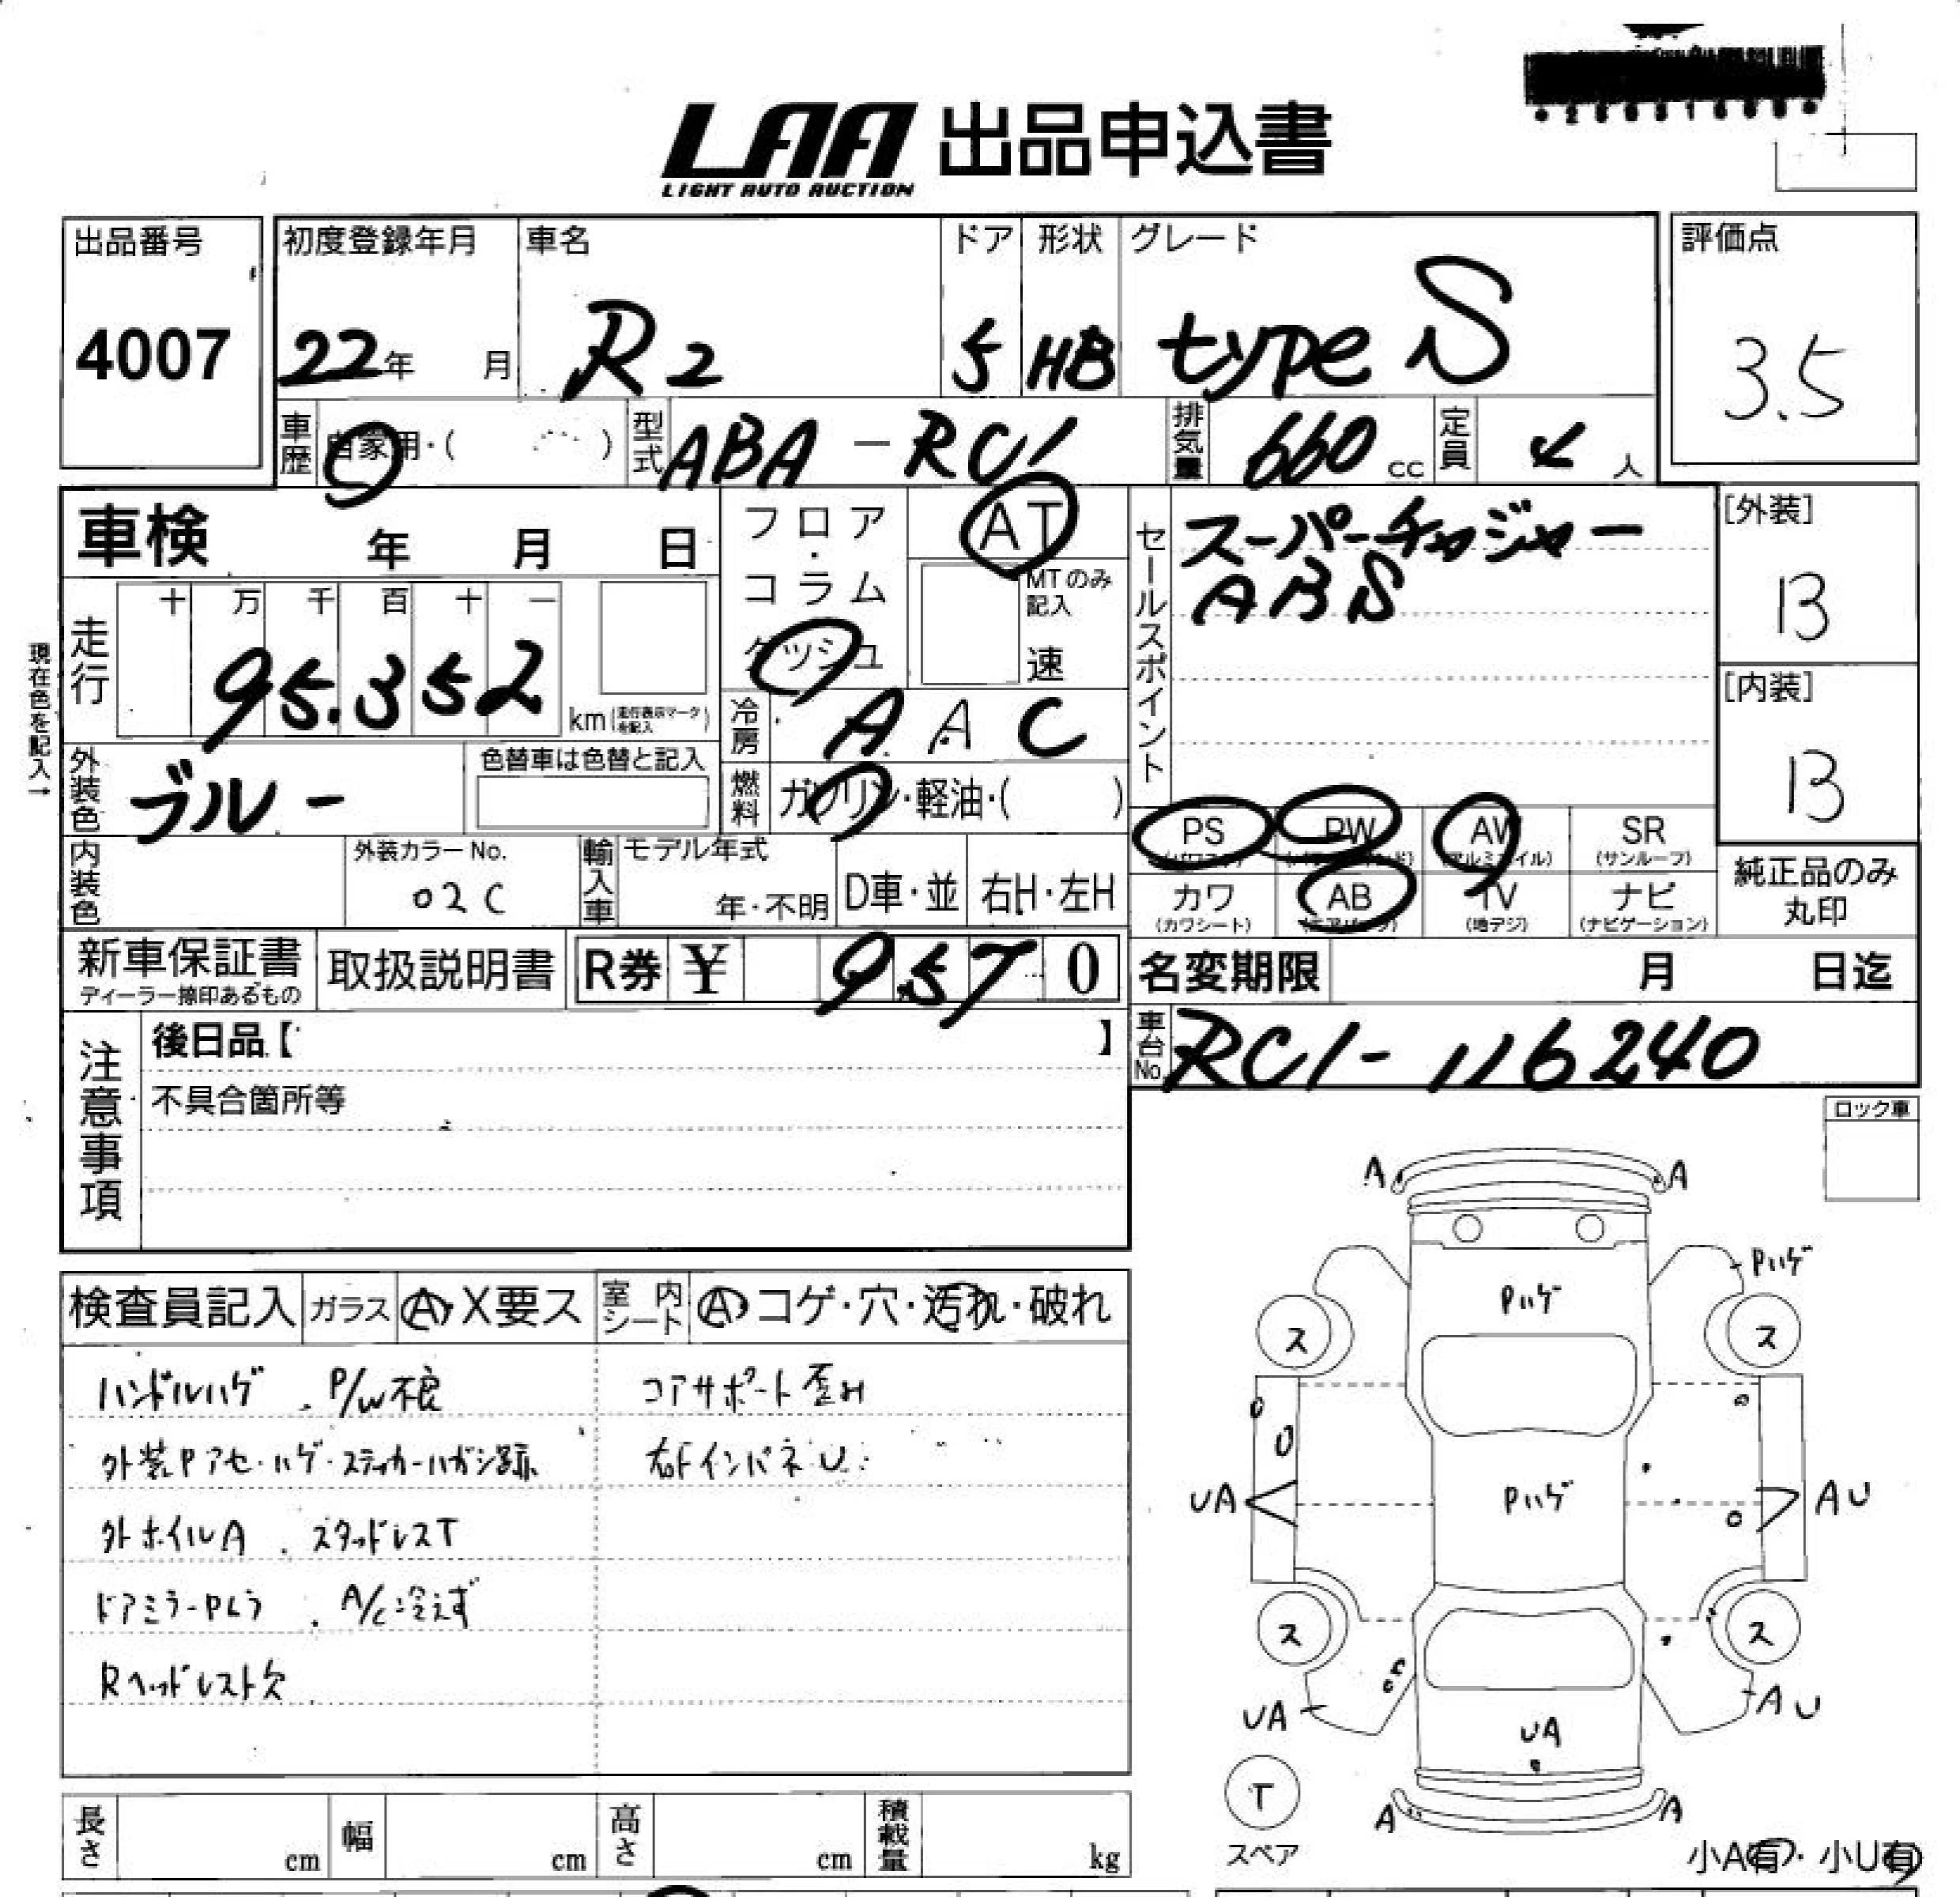 LAA 出品申込書
LIGHT AUTO AUCTION
出品番号
4007
初度登録年月
22年 月
車名
R2
ドア
5
形状
HB
グレード
type S
評価点
3.5
車歴
自家用・( )
型式
ABA-RC1
排気量
660 cc
定員
4 人
車検 年 月 日
フロア・コラム
ダッシュ
AT
MTのみ記入
速
セールスポイント
スーパーチャージャー
ABS
[外装]
B
[内装]
B
現在色を記入→
走行
十 万 千 百 十 一
95.352
km(走行表示マークを記入)
冷房
A A C
外装色
ブルー
色替車は色替と記入
燃料
ガソリン・軽油・( )
内装色
外装カラーNo.
02C
輸入車
モデル年式
年・不明
D車・並
右H・左H
PS
(パワステ)
PW
AW
(アルミホイル)
SR
(サンルーフ)
カワ
(カワシート)
AB
(エアバッグ)
TV
(地デジ)
ナビ
(ナビゲーション)
純正品のみ
丸印
新車保証書
ディーラー捺印あるもの
取扱説明書
R券 ¥ 9,570
名変期限 月 日迄
注意事項
後日品【 】
不具合箇所等
車台No.
RC1-116240
ロック車
検査員記入
ガラス
A・X要ス
室内シート
A コゲ・穴・汚れ・破れ
ハンドルハゲ . P/W不良
コアサポート歪み
外装Pアセ・ハゲ・ステッカーハガシ跡
右FインパネU
外ホイルA . スタッドレスT
ドアミラーPムラ . A/C冷えず
Rヘッドレスト欠
A
A
Pハゲ
Pハゲ
ス
ス
UA
Pハゲ
AU
ス
ス
UA
UA
AU
T
スペア
A
A
小A有・小U有
長さ cm
幅 cm
高さ cm
積載量 kg